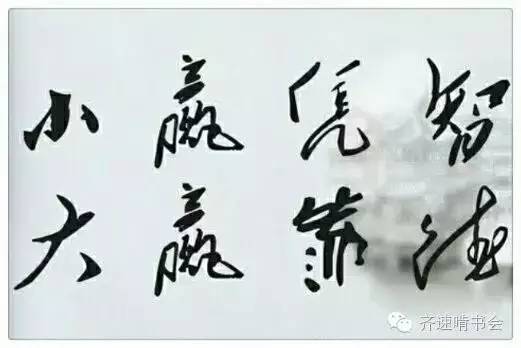 小赢凭智
大赢靠德
齐速啃书会